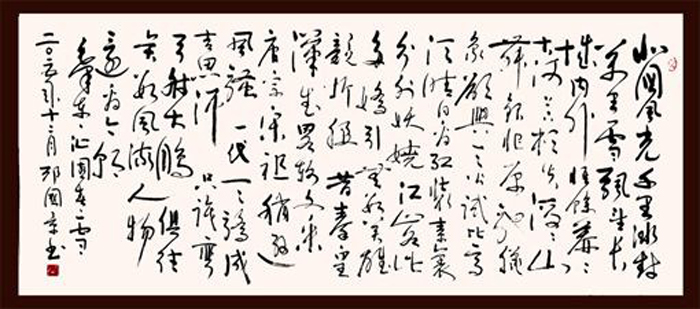 北國風光千里冰封
万里雪飘望长
城内外惟馀莽莽
大河上下顿失滔滔山
舞银蛇原驰蜡
象欲與天公试比高
须晴日看红装素裹
分外妖娆江山如此
多娇引无数英雄
竞折腰惜秦皇
汉武略输文采
唐宗宋祖稍逊
風骚一代天骄成
吉思汗只识弯
弓射大鵰俱往
矣数風流人物
还看今朝
毛泽东沁園春雪
年十二月 國 书